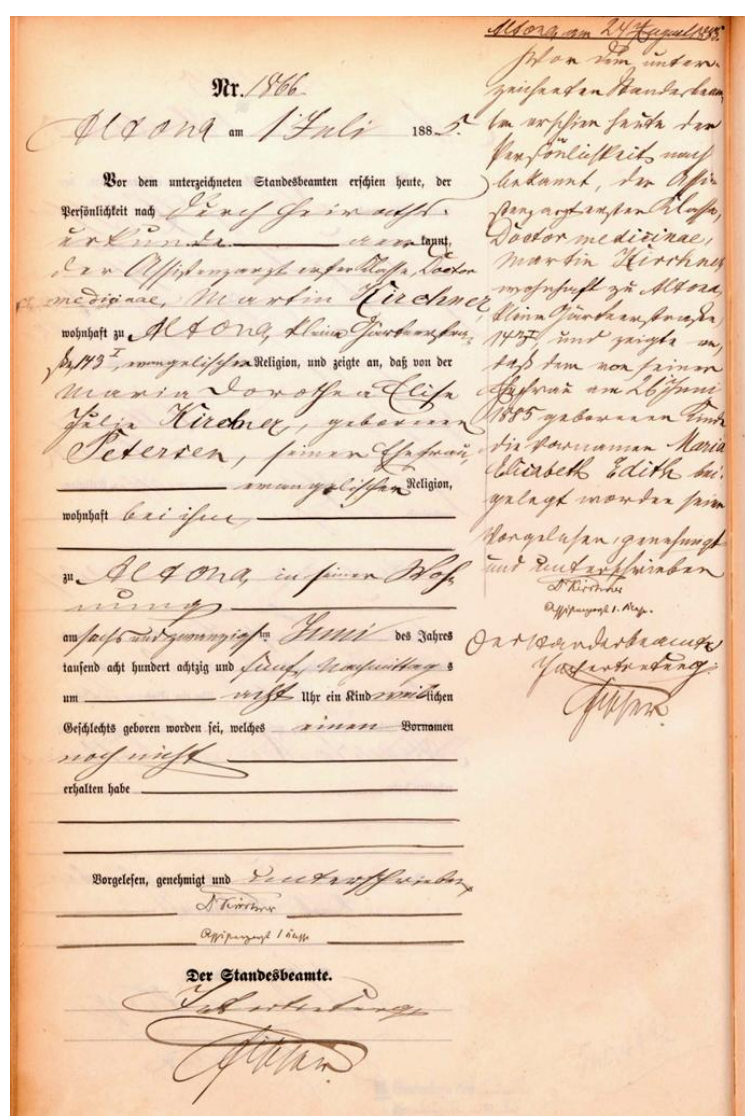 Nr. 1866.
Altona am 1 Juli 1885.
Vor dem unterzeichneten Standesbeamten erschien heute, der
Persönlichkeit nach durch Heiraths-
urkunde anerkannt,
der Assistenzarzt erster Klasse, Doctor
medicinae, Martin Kirchner
wohnhaft zu Altona, kleine Gärtnerstra-
ße 143 I, evangelischer Religion, und zeigte an, daß von der
Maria Dorothea Elise
Julie Kirchner, geborenen
Petersen, seiner Ehefrau,
evangelischer Religion,
wohnhaft bei ihm,
zu Altona, in seiner Woh-
nung
am sechs und zwanzigsten Juni des Jahres
tausend acht hundert achtzig und fünf, Nachmittags
um acht Uhr ein Kind weiblichen
Geschlechts geboren worden sei, welches einen Vornamen
noch nicht
erhalten habe
Vorgelesen, genehmigt und unterschrieben
Dr Kirchner
Assistenzarzt I Klasse
Der Standesbeamte.
In Vertretung
Altona am 24 August 1885.
Vor dem unter-
zeichneten Standesbeam-
ten erschien heute der
Persönlichkeit nach
bekannt, der Assi-
stenzarzt erster Klasse,
Doctor medicinae,
Martin Kirchner
wohnhaft zu Altona,
kleine Gärtnerstraße
143 I, und zeigte an,
daß dem von seiner
Ehefrau am 26 Juni
1885 geborenen Kinde
die Vornamen Maria
Elisabeth Edith bei-
gelegt worden seien
Vorgelesen, genehmigt
und unterschrieben
Dr Kirchner
Assistenzarzt I. Klasse.
Der Standesbeamte
In Vertretung: